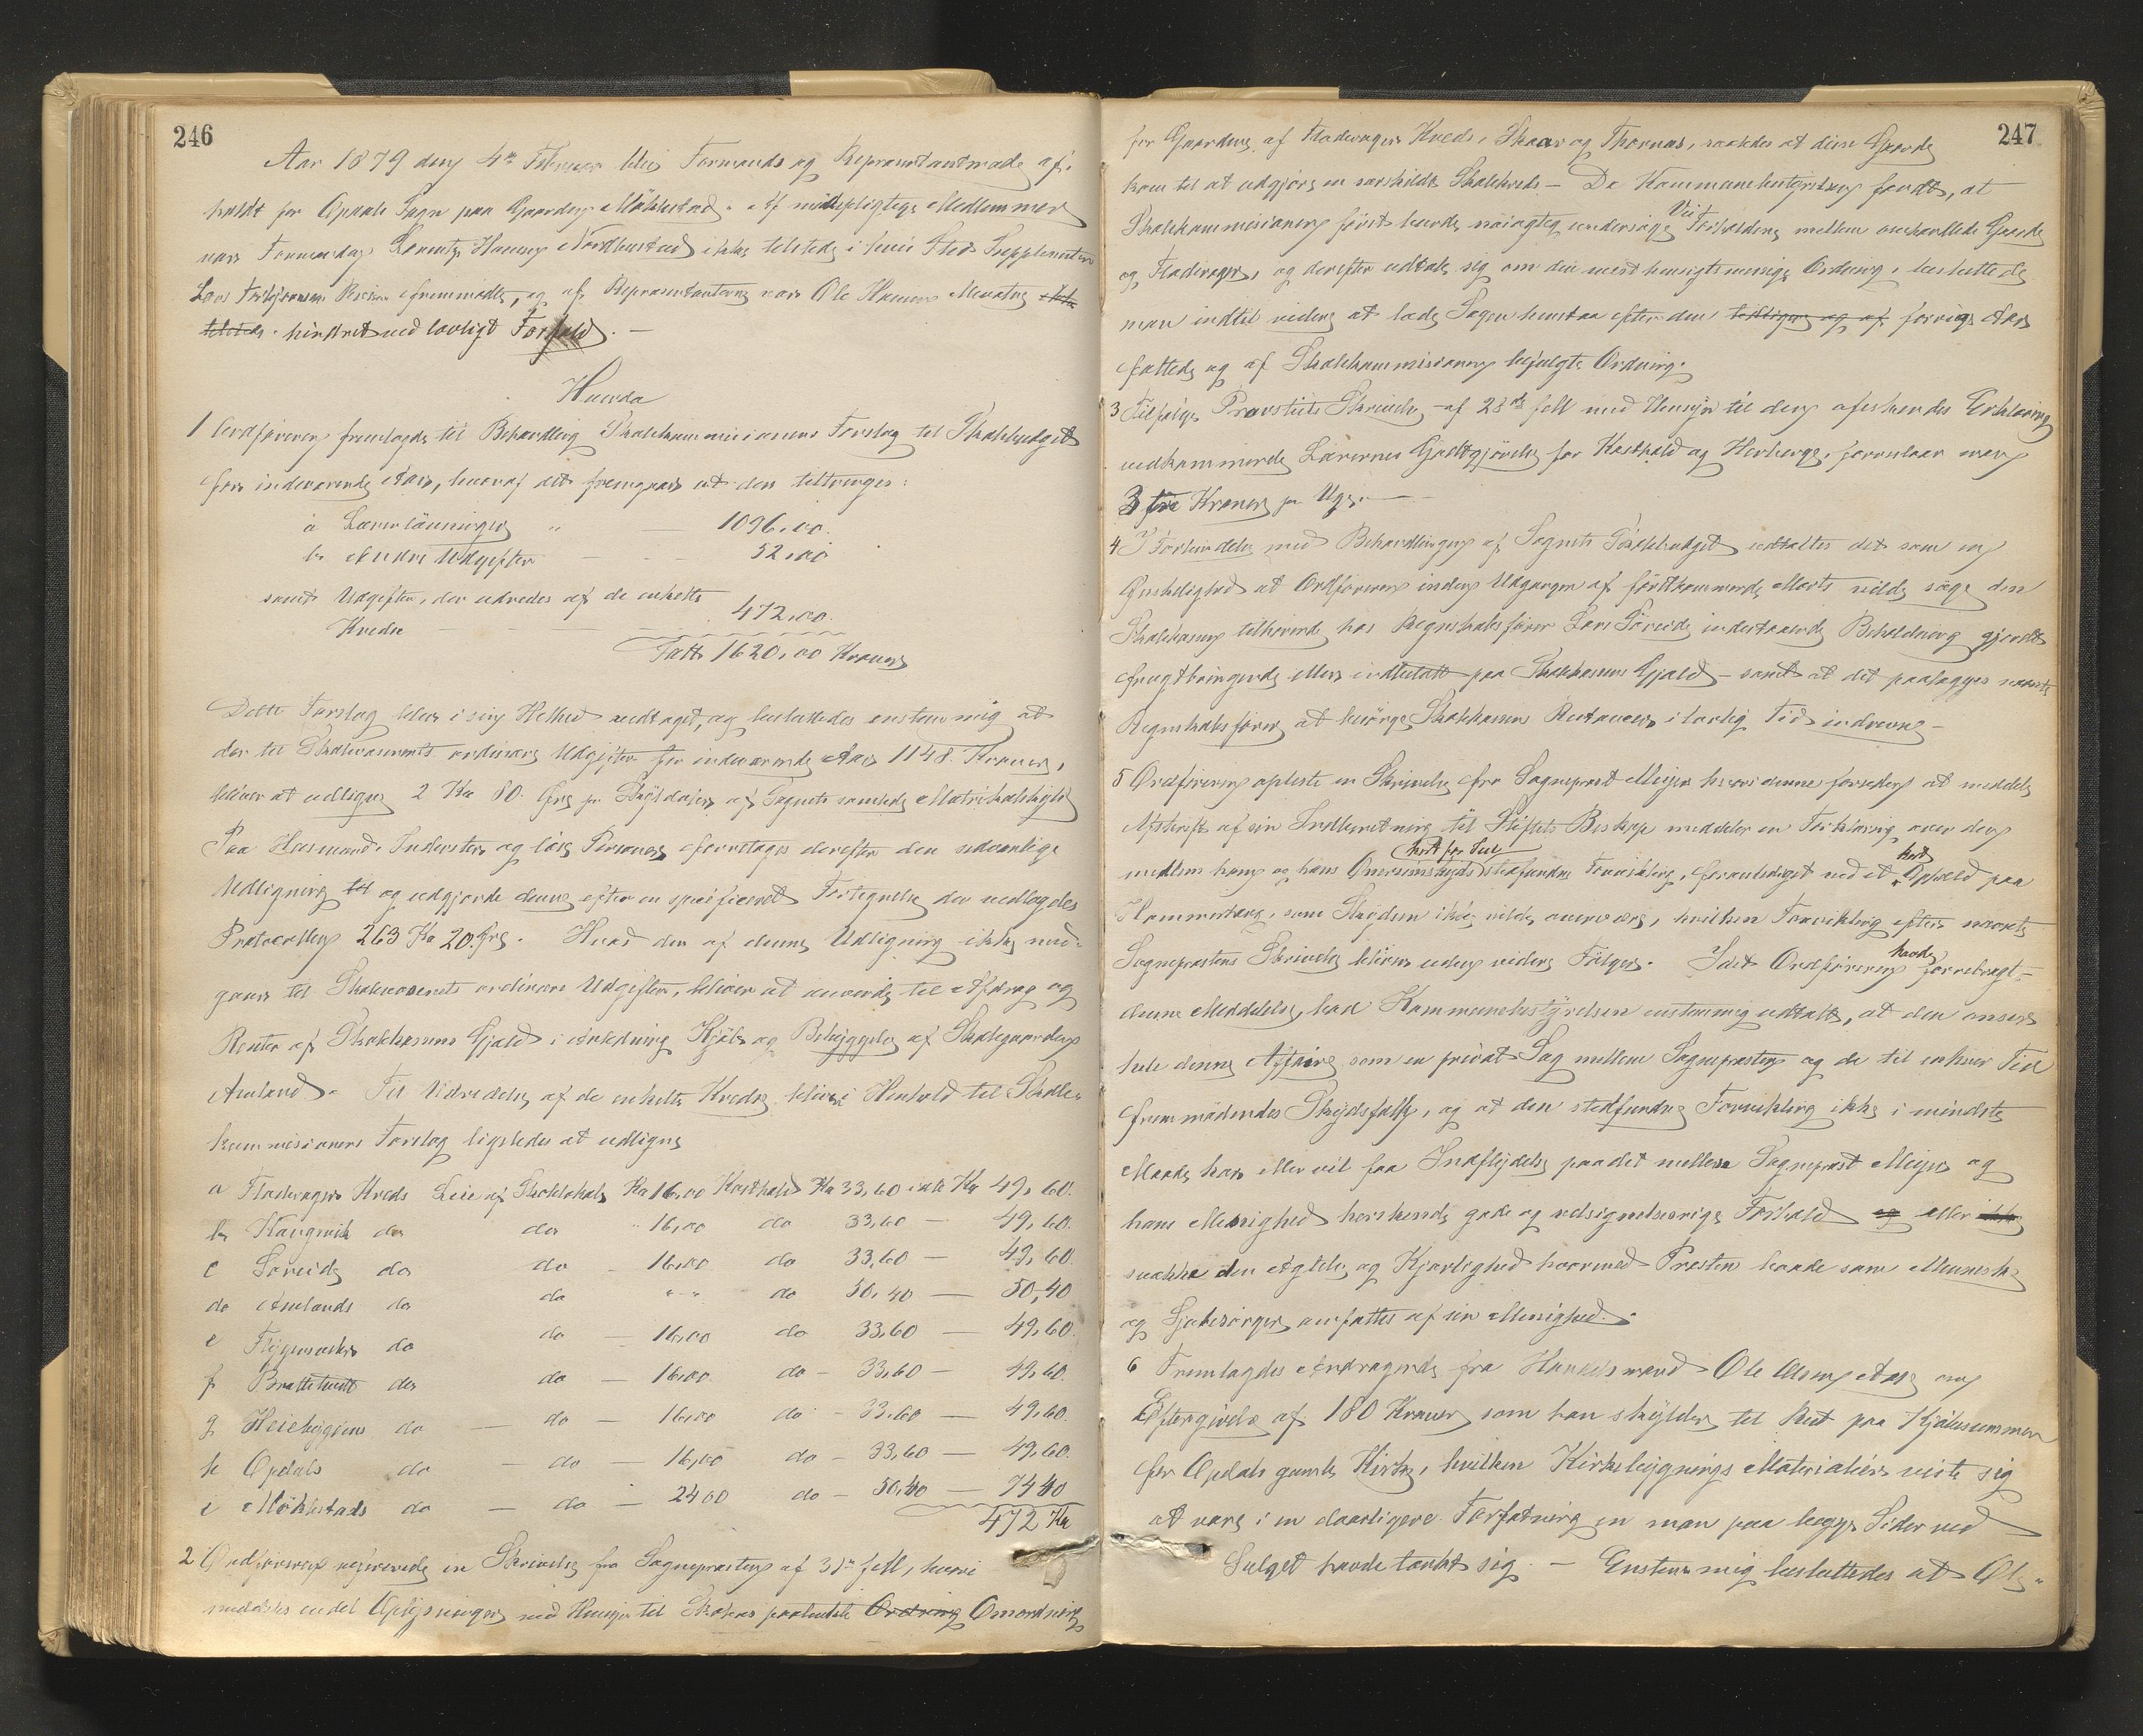 246
Aar 1879 den 4de Februar blev Formands og Repræsentantmøde af-
holdt for Opdals Sogn paa Gaarden Møklestad. Af mødepligtige Medlemmer
var Formanden Hansen Nordhustad ikke tilstede i hvis Sted Suppleanten
Lars fremmødte, og af Repræsentanterne var Ole Hansen ikke
tilstede. hindret ved lovligt Forfald. —
Hvorda
1 Ordføreren fremlagde til Behandling Skolekommisionens Forslag til Skolebudget
for indeværende Aar, hvoraf det fremgaar at der tiltrænges:
a Lærerlønninger " — 1096,00.
b Andre Udgifter — - 52,00
samt Udgifter, der udredes af de enkelte
Kredse — — 472,00.
Tatt 1620,00 Kroner
Dette Forslag blev i sin Helhed vedtaget, og besluttedes enstemmig at
der til Skolevæsenets ordinære Udgifter for indeværende Aar 1148 Kroner,
bliver at udligne 2 Kr 80. Øre pr Skylddaler af Sognets samlede Matrikulskyld
Paa Husmænd, Inderster og løse Personer foretages derefter den sedvanlige
Udligning til og udgjorde denne efter en specificeret Fortegnelse der vedlagdes
Protocollen 263 Kr 20. Øre. Hvad der af denne Udligning ikke med-
gaar til Skolevæsenets ordinære Udgifter, bliver at anvende til Afdrag og
Renter af Skolekassens Gjæld i Anledning Kjøb og Bebyggelse af Skolegaarden
Amland. Til Udredelse af de enkelte Kredse bliver i Henhold til Skole-
kommisionens Forslag ligeledes at udligne
a Fladevagers Kreds Leie af Skolelokale Kr 16,00 Kosthold Kr 33,60 ialt Kr 49,60.
b Kaugevik do do " 16,00 do 33,60 — 49,60.
c Søreide do do - 16,00 do 33,60 — 49,60
do Amlands do do " - " do 50,40 — 50,40
e Flygansvær do do — 16,00 do 33,60 — 49,60.
f Brattetveit do do — 16,00 do - 33,60 — 49,60.
g Heiebygden do — do — 16,00 do - 33,60 — 49,60.
h Opdals do — do — 16,00 do - 33,60 — 49,60.
i Møklestads do — do — 24 00 do - 50,40 — 74 40
472 Kr
2 Ordføreren refererede en Skrivelse fra Sognepresten af 31te f M, hvori
meddeles endel Oplysninger med Hensyn til Skolens paatænkte Ordning Omordning
247
for Gaardene af Fladevager Kreds, Skaar og Thornæs, saaledes at disse Gaarde
kom til at udgjøre en særskildt Skolekreds — Da Kommunebestyrelsen fandt, at
Vei
Skolekommisionen først burde nøiagtig undersøge Forholdene mellem omhandlede Gaarde
og Fladevager, og derefter udtale sig om den mest hensigtsmæsige Ordning, besluttede
man indtil videre at lade Sagen henstaa efter den tidligere og af forrige Aar
fattede og af Skolekommisionen befulgte Ordning.
3 Tilfølge Provstiets Skrivelse af 28de f M med Hensyn til den afæskende Erklæring
vedkommende Lærernes Godtgjørelse for Kosthold og Herberge, foreslaar man
3 tre Kroner pr Uge. —
4 I Forbindelse med Behandlingen af Sognets Skolebudget udtaltes det som en
Ønskelighed at Ordføreren inden Udgangen af førstkommende Marts vilde søge den
Skolekassen tilhørende hos Regnskabsfører Lars Søreide indestaaende Beholdning gjordt
frugtbringende eller indbetalt paa Skolekassens Gjæld — samt at det paalægges næste
Regnskabsfører at besørge Skolekassens Restancer i lovlig Tid inddrevne —
5 Ordføreren oplæste en Skrivelse fra Sogneprest Meyer hvori denne foruden at meddele
Afskrift af sin Indberetning til Stiftets Biskop meddeler en Forklaring over den
kort før Jul kort
mellem ham og hans stedfundne Forvikling, foranlediget ved et Ophold paa
Hammerhaug, som Skydsen ikke vilde overvære, hvilken Forvikling efter nævnte
havde
Sogneprestens Skrivelse bliver uden videre Følger. Idet Ordføreren forrebragt —
denne Meddelelse, bad Kommunebestyrelsen enstemmig udtalt, at den anser
hele denne Affaire som en privat Sag mellem Sognepresten og de til enhver Tid
fremmødendes Skydsfolk, og at den stedfundne Forvikling ikke i mindste
Maade har eller vil faa Indflydelse paa det mellem Sogneprest Meyer og
hans Menighed herskende gode og velsignelsesrige Forhold og eller ikke
svække den Agtelse og Kjærlighed hvormed Presten baade som Menneske
og Sjælesørger omfattes af sin Menighed.
6 Fremlagdes Andragende fra Handelsmand Ole Olsen Aase om
Eftergivelse af 180 Kroner som han skylder til Rest paa Kjøbesummen
for Opdals gamle Kirke, hvilken Kirkebygnings Materialier viste sig
at være i en daarligere Forfatning en man paa begge Sider ved
Salget havde tænkt sig. — Enstemmig besluttedes at Ole